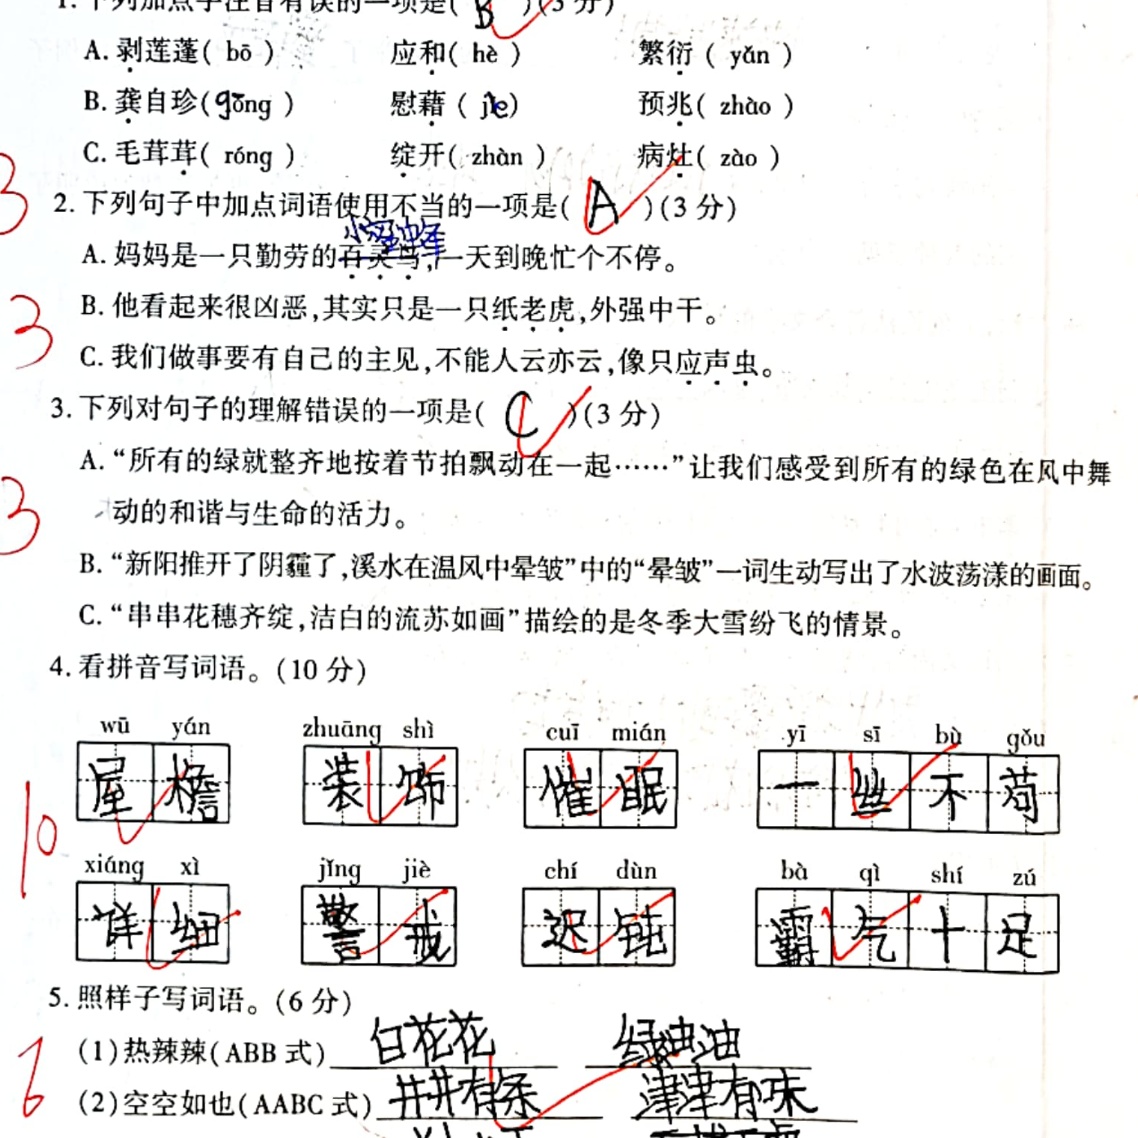 1. 下列加点字注音有误的一项是( B )(3分)
A. 剥莲蓬( bō ) 应和( hè ) 繁衍( yǎn )
B. 龚自珍(gōng ) 慰藉( jiè) 预兆( zhào )
C. 毛茸茸( róng ) 绽开( zhàn ) 病灶( zào )
3
2. 下列句子中加点词语使用不当的一项是( A )(3分)
A. 妈妈是一只勤劳的百灵鸟,一天到晚忙个不停。
3
B. 他看起来很凶恶,其实只是一只纸老虎,外强中干。
C. 我们做事要有自己的主见,不能人云亦云,像只应声虫。
3. 下列对句子的理解错误的一项是( C )(3分)
A. “所有的绿就整齐地按着节拍飘动在一起……”让我们感受到所有的绿色在风中舞
3
动的和谐与生命的活力。
B. “新阳推开了阴霾了,溪水在温风中晕皱”中的“晕皱”一词生动写出了水波荡漾的画面。
C. “串串花穗齐绽,洁白的流苏如画”描绘的是冬季大雪纷飞的情景。
4. 看拼音写词语。(10分)
wū yán zhuāng shì cuī mián yī sī bù gǒu
屋檐 装饰 催眠 一丝不苟
10
xiáng xì jǐng jiè chí dùn bà qì shí zú
详细 警戒 迟钝 霸气十足
5. 照样子写词语。(6分)
(1)热辣辣(ABB式) 白花花 绿油油
6
(2)空空如也(AABC式) 井井有条 津津有味